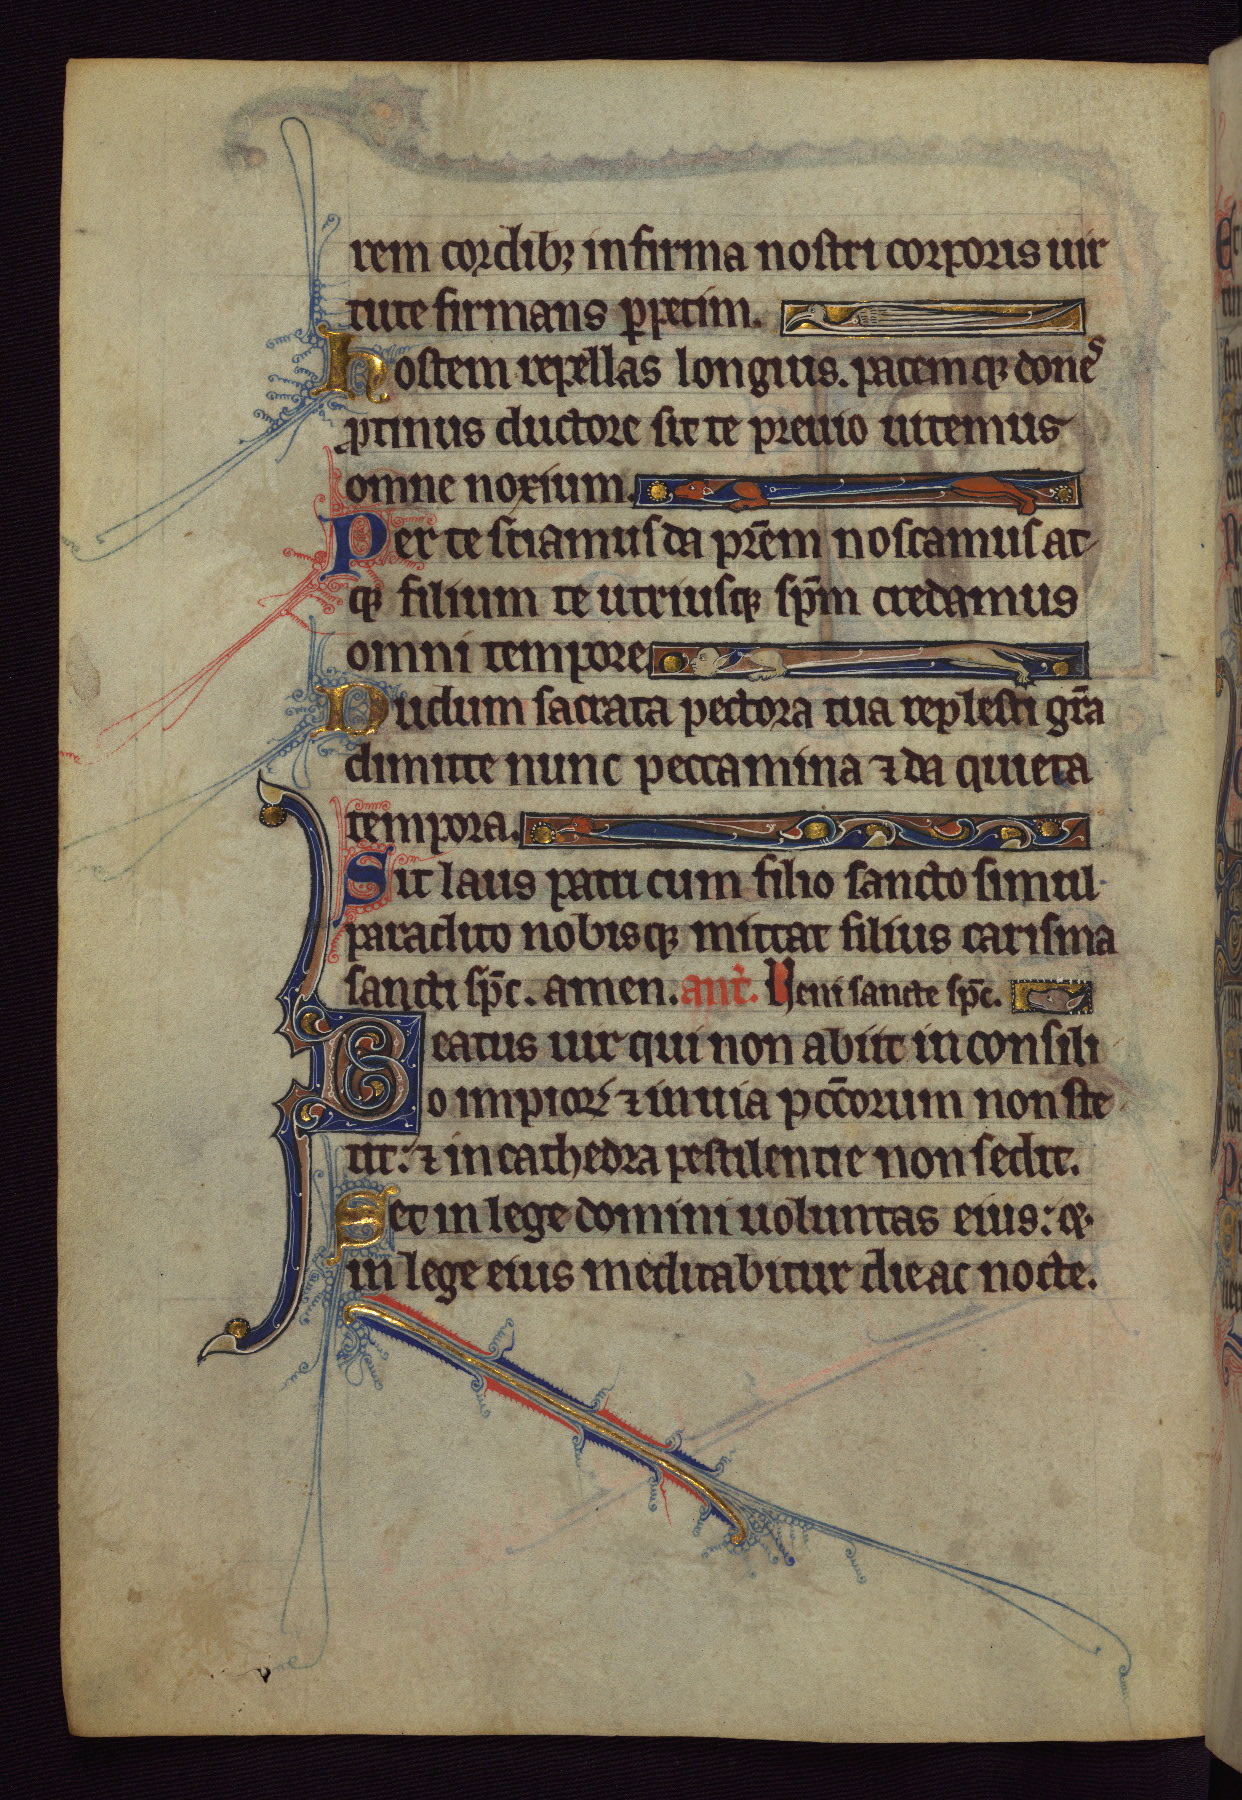 rem cordibꝫ infirma nostri corporis uir
tute firmans ꝑpetim.
hostem repellas longius. pacem qꝫ dones
ꝓtinus ductore sic te preuio uitemus
omne noxium.
Per te sciamus da pr̄em noscamus at
qꝫ filium te utriusqꝫ sp̄m credamus
omni tempore
Dudum sacrata pectora tua replesti gr̄a
dimitte nunc peccamina ⁊ da quieta
tempora.
Sit laus patri cum filio sancto simul
paraclito nobisqꝫ mittat filius carisma
sancti sp̄c. amen. ant̄. Veni sancte sp̄c.
Beatus uir qui non abiit in consili
o impioꝝ ⁊ in uia pc̄corum non ste
tit: ⁊ in cathedra pestilentie non sedit.
Set in lege domini uoluntas eius: ⁊
in lege eius meditabitur die ac nocte.